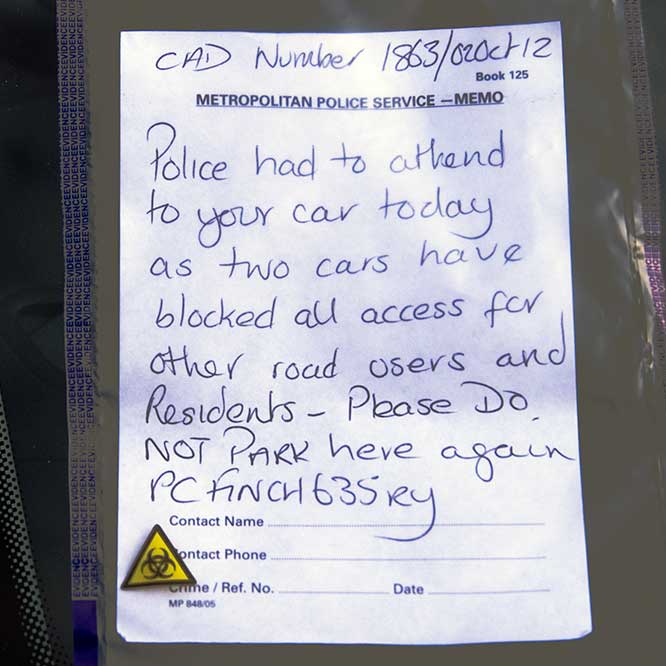 CAD Number 1863/02Oct12
Book 125
METROPOLITAN POLICE SERVICE — MEMO
Police had to attend
to your car today
as two cars have
blocked all access for
other road users and
Residents - Please DO
NOT PARK here again
PC FINCH 635RY
Contact Name
ontact Phone
me / Ref. No. Date
MP 848/05
EVIDENCEEVIDENCEEVIDENCEEVIDENCE